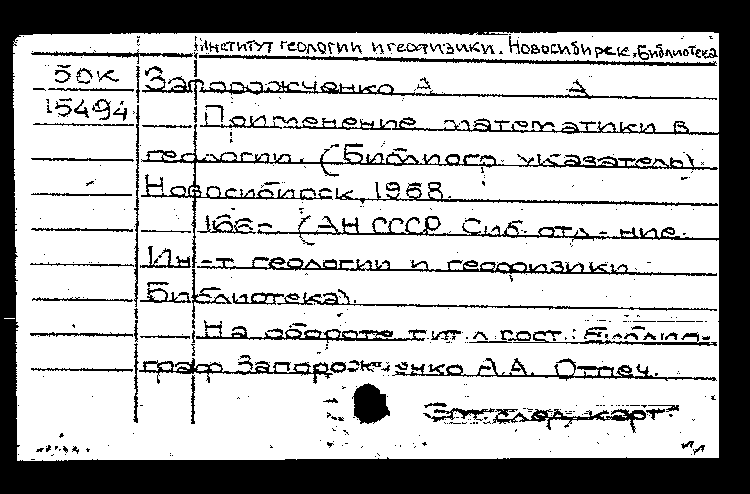 Институт геологии и геофизики. Новосибирск. Библиотека
бок Запорожченко А А
15494 Применение математики в
геологии. (Библиогр. указатель).
Новосибирск, 1968.
166с (АН СССР Сиб. отд-ние.
Ин-т геологии и геофизики.
Библиотека).
На обороте тит л сост.: Библио-
граф Запорожченко А.А. Отпеч.
след. карт.